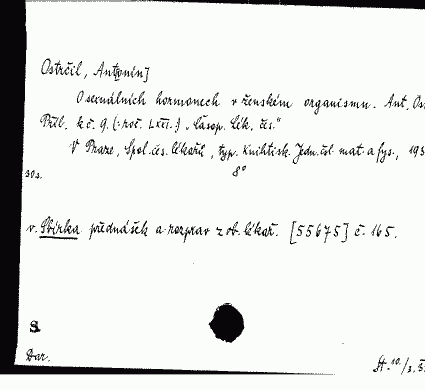 Ostrčil, Antonín]
O sexuálních hormonech v ženském organismu. Ant. Os
Příl. k č. 9. (roč. LXXI.) „Časop. lék. čes.“
V Praze, Spol. čes. lékařů, typ. Knihtisk. Jedn. čsl. mat. a fys., 193
30 s. 8°
v. Sbírka přednášek a rozprav z ob. lékař. [55675] č. 165.
S
Dar.